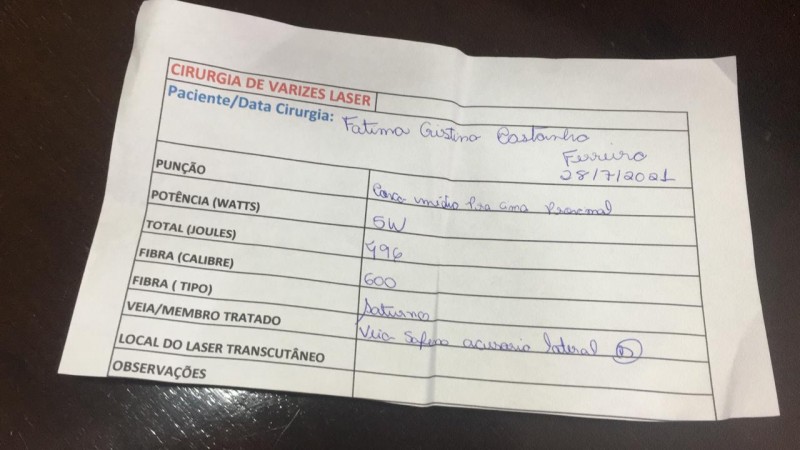 CIRURGIA DE VARIZES LASER
Paciente/Data Cirurgia: Fatima Cristina Castanho
Ferreira
28/7/2021
PUNÇÃO
Coxa médio Proximal
POTÊNCIA (WATTS) 5W
TOTAL (JOULES) 496
FIBRA (CALIBRE) 600
FIBRA ( TIPO) Saturno
VEIA/MEMBRO TRATADO Veia Safena acessoria lateral D
LOCAL DO LASER TRANSCUTÂNEO
OBSERVAÇÕES